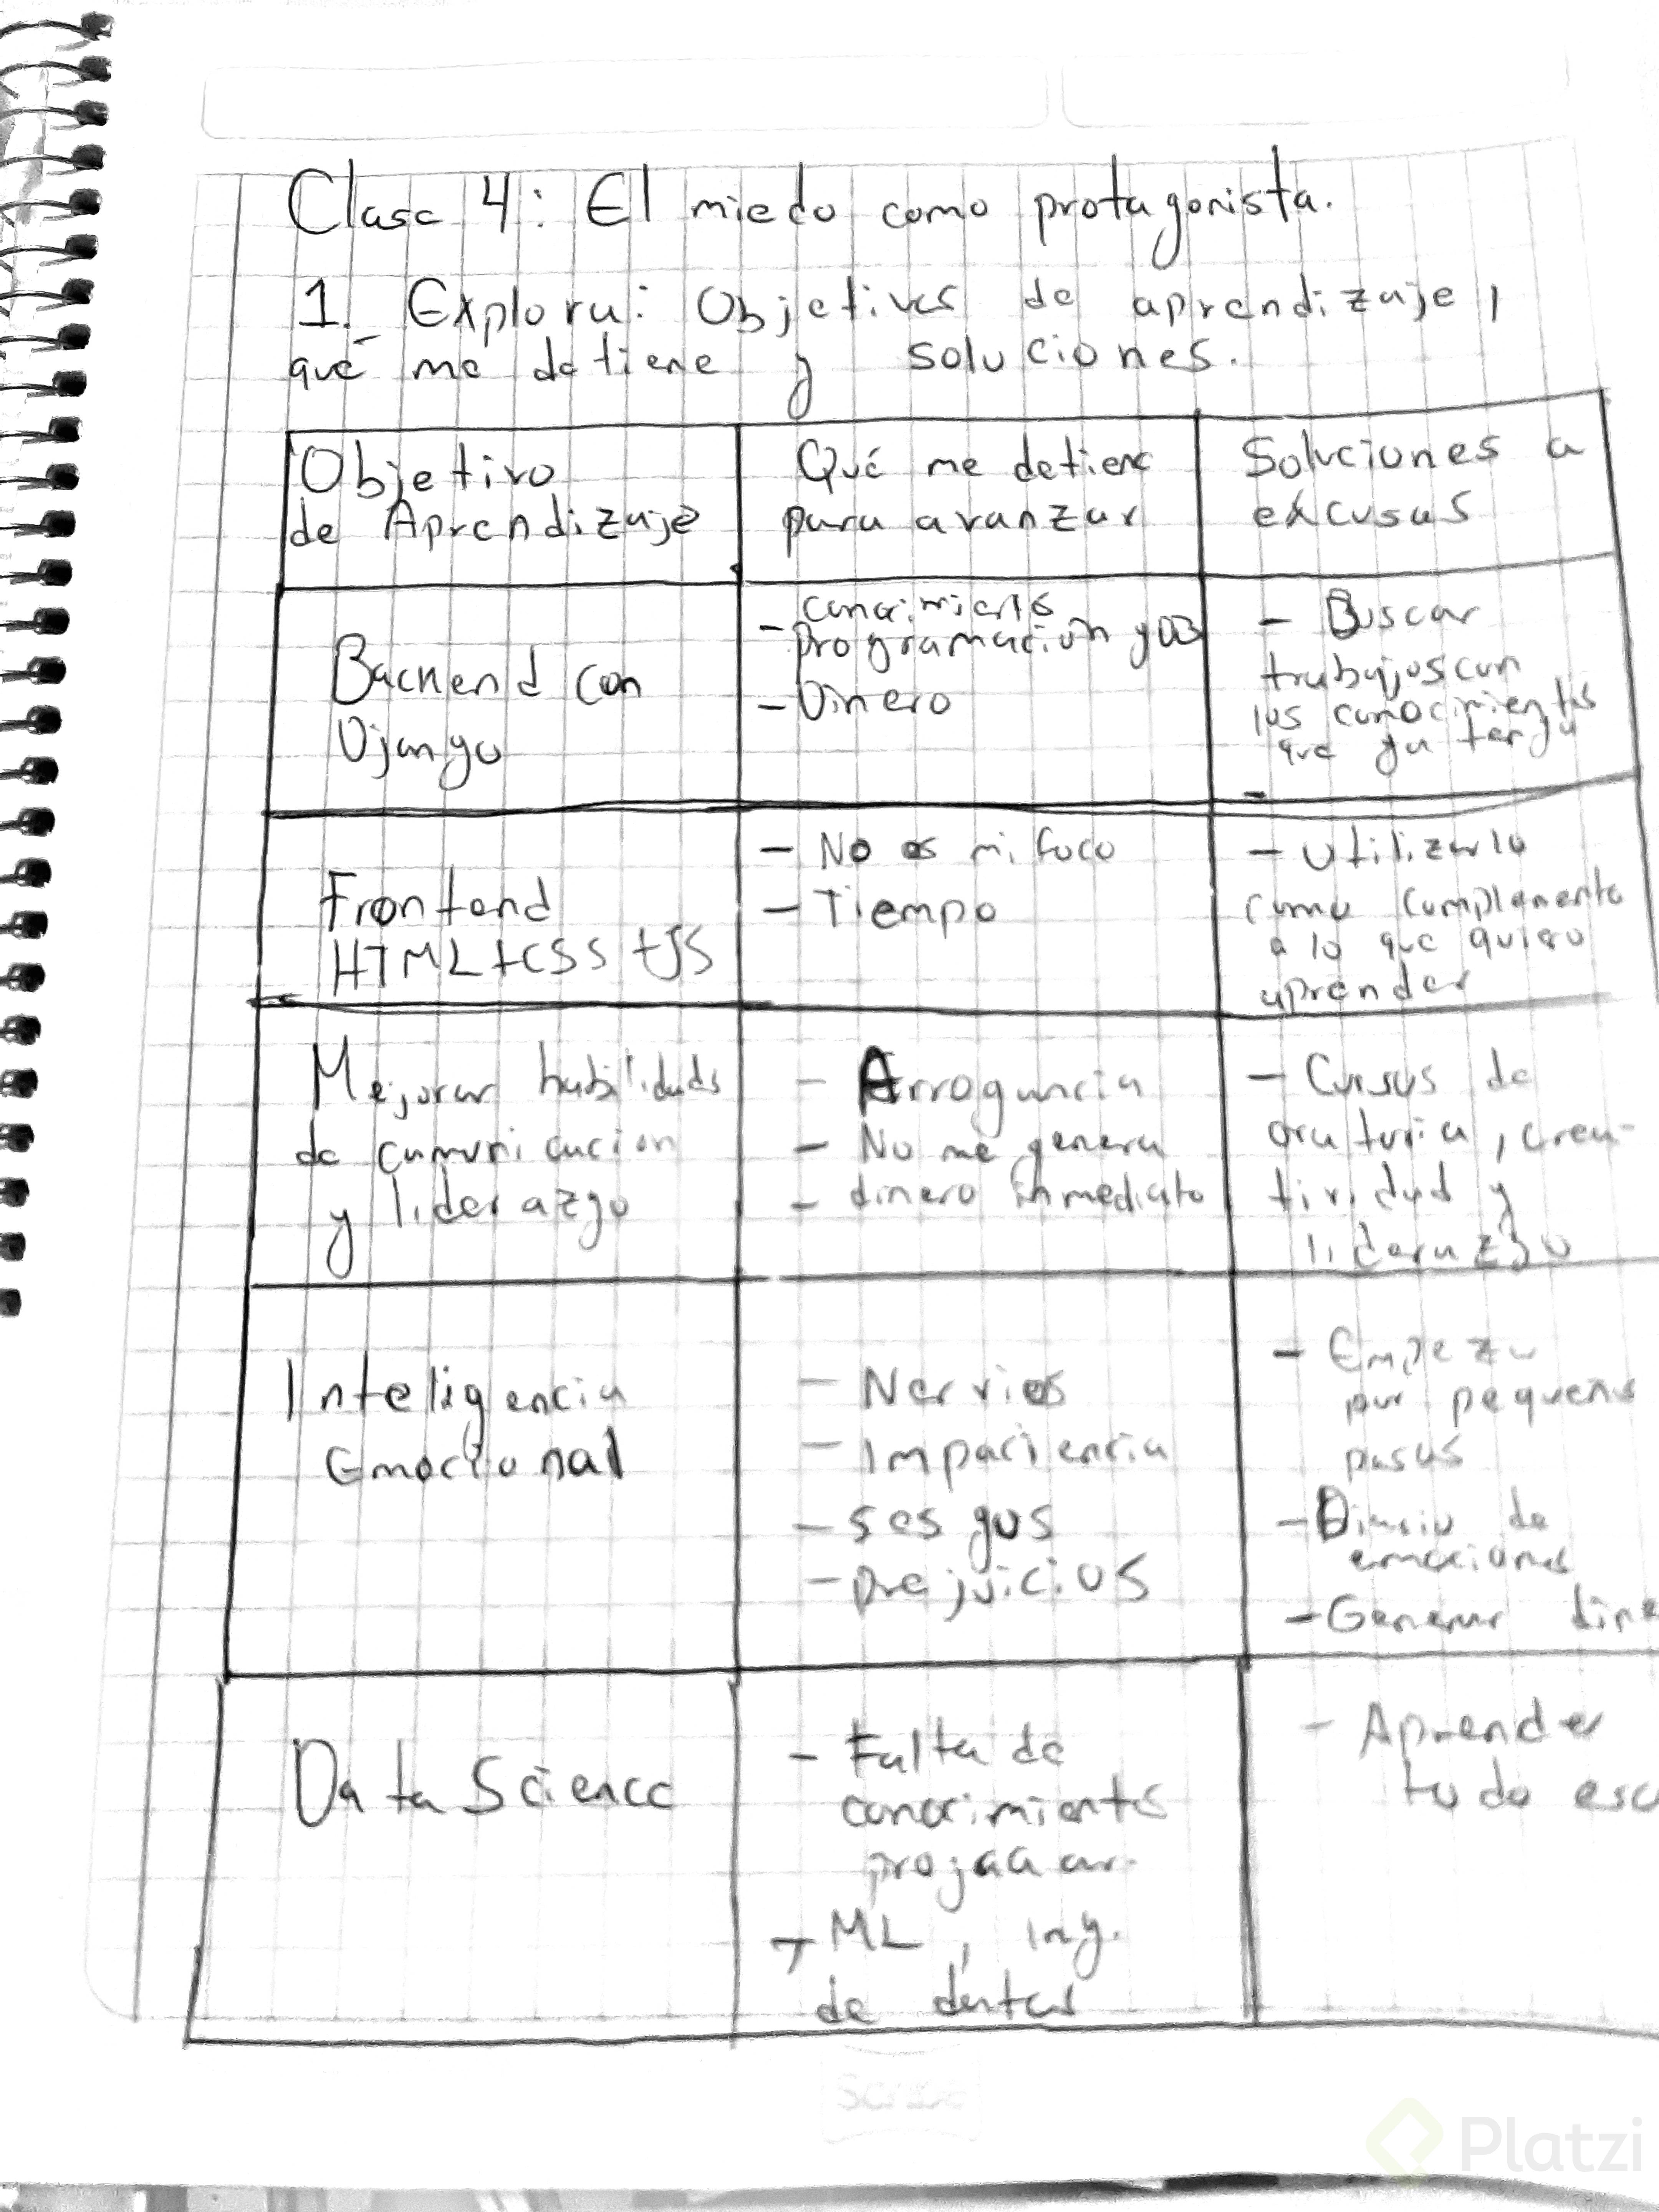 Clase 4: El miedo como protagonista.
1. Explora: Objetivos de aprendizaje,
qué me detiene y soluciones.
Objetivo
de Aprendizaje
Qué me detiene
para avanzar
Soluciones a
excusas
Backend con
Django
- conocimients
programación y DB
- Dinero
- Buscar
trabajos con
los conocimientos
que ya tengo
-
Frontend
HTML+CSS+JS
- No es mi foco
- Tiempo
- Utilizarlo
como complemento
a lo que quiero
aprender
Mejorar habilidads
de comunicacion
y liderazgo
- Arrogancia
- No me genera
- dinero inmediato
- Cursos de
oratoria, crea-
tividad y
liderazgo
Inteligencia
Emocional
- Nervios
- Impaciencia
- sesgos
- prejuicios
- Empeza
por pequeños
pasos
- Diario de
emociones
- Generar dine
Data Science
- Falta de
conocimiento
- ML, ing.
de
- Aprender
todo eso
Scribe
Platzi